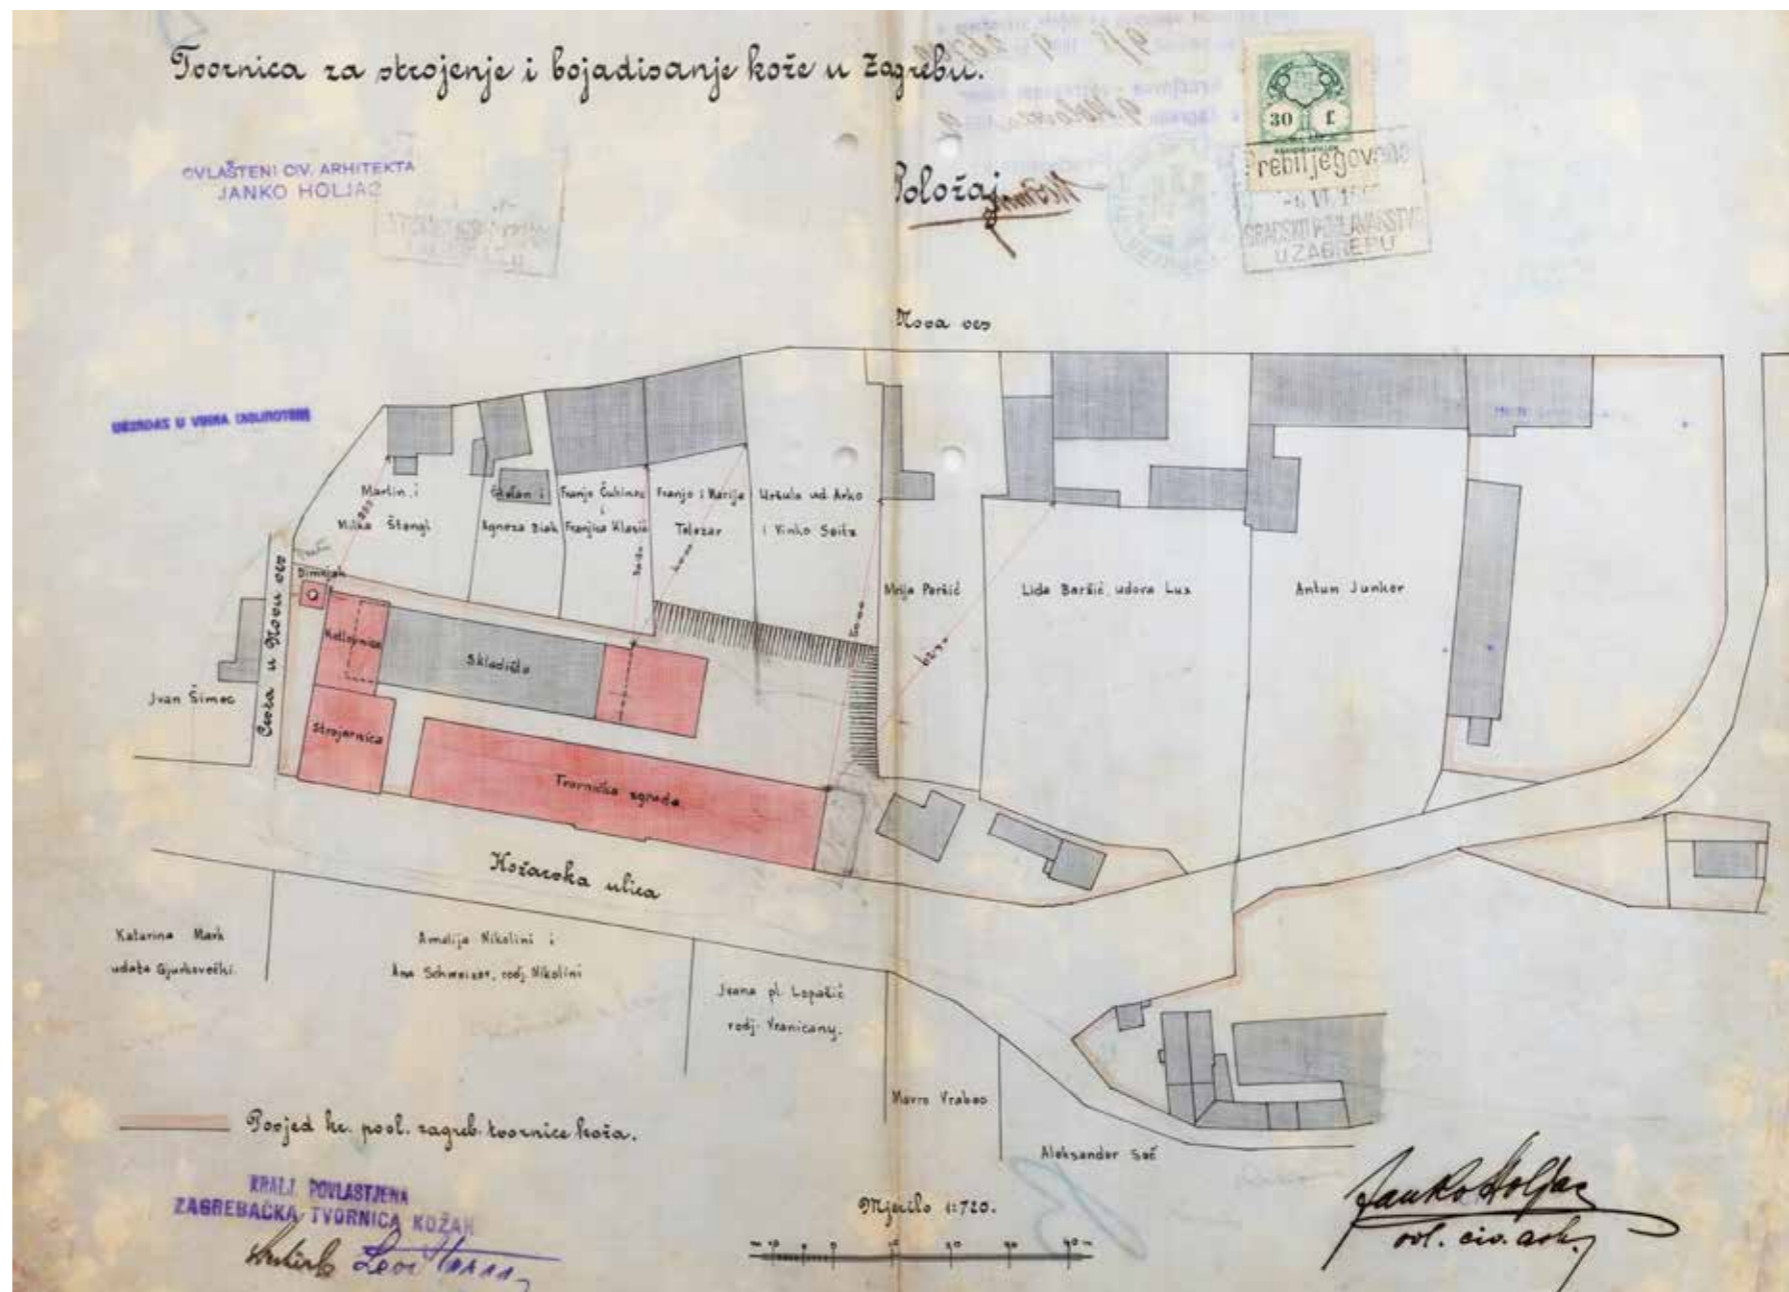 Tvornica za strojenje i bojadisanje kože u Zagrebu.
OVLAŠTENI CIV. ARHITEKTA
JANKO HOLJAC
Položaj
30 f.
Prebilježeno
GRADSKO POGLAVARSTVO
U ZAGREBU
Nova ves
Martin i
Milka Štengl
Štefan i
Agneza Biak
Franjo Čuhinec
i
Franjica Klasić
Franjo i Marija
Telezar
Uršula ud. Arko
i Vinko Seitz
Mrija Peršić
Lida Baršić udova Lux
Antun Junker
Dimnjak
Kotlovnica
Skladište
Strojarnica
Tvornička zgrada
Cesta u Novu ves
Jvan Šimec
Kožarska ulica
Katarina Mark
udata Gjurkovečki.
Amalija Nikolini i
Ana Schweizer, rodj. Nikolini
Jvana pl. Lopašić
rodj. Vranicany.
Mavro Vrabec
Aleksander Seć
Posjed kr. povl. zagreb. tvornice koža.
KRALJ. POVLASTJENA
ZAGREBAČKA TVORNICA KOŽAH
Mjerilo 1:720.
m 10 0 10 20 30 40 m
Janko Holjac
ovl. civ. arh.